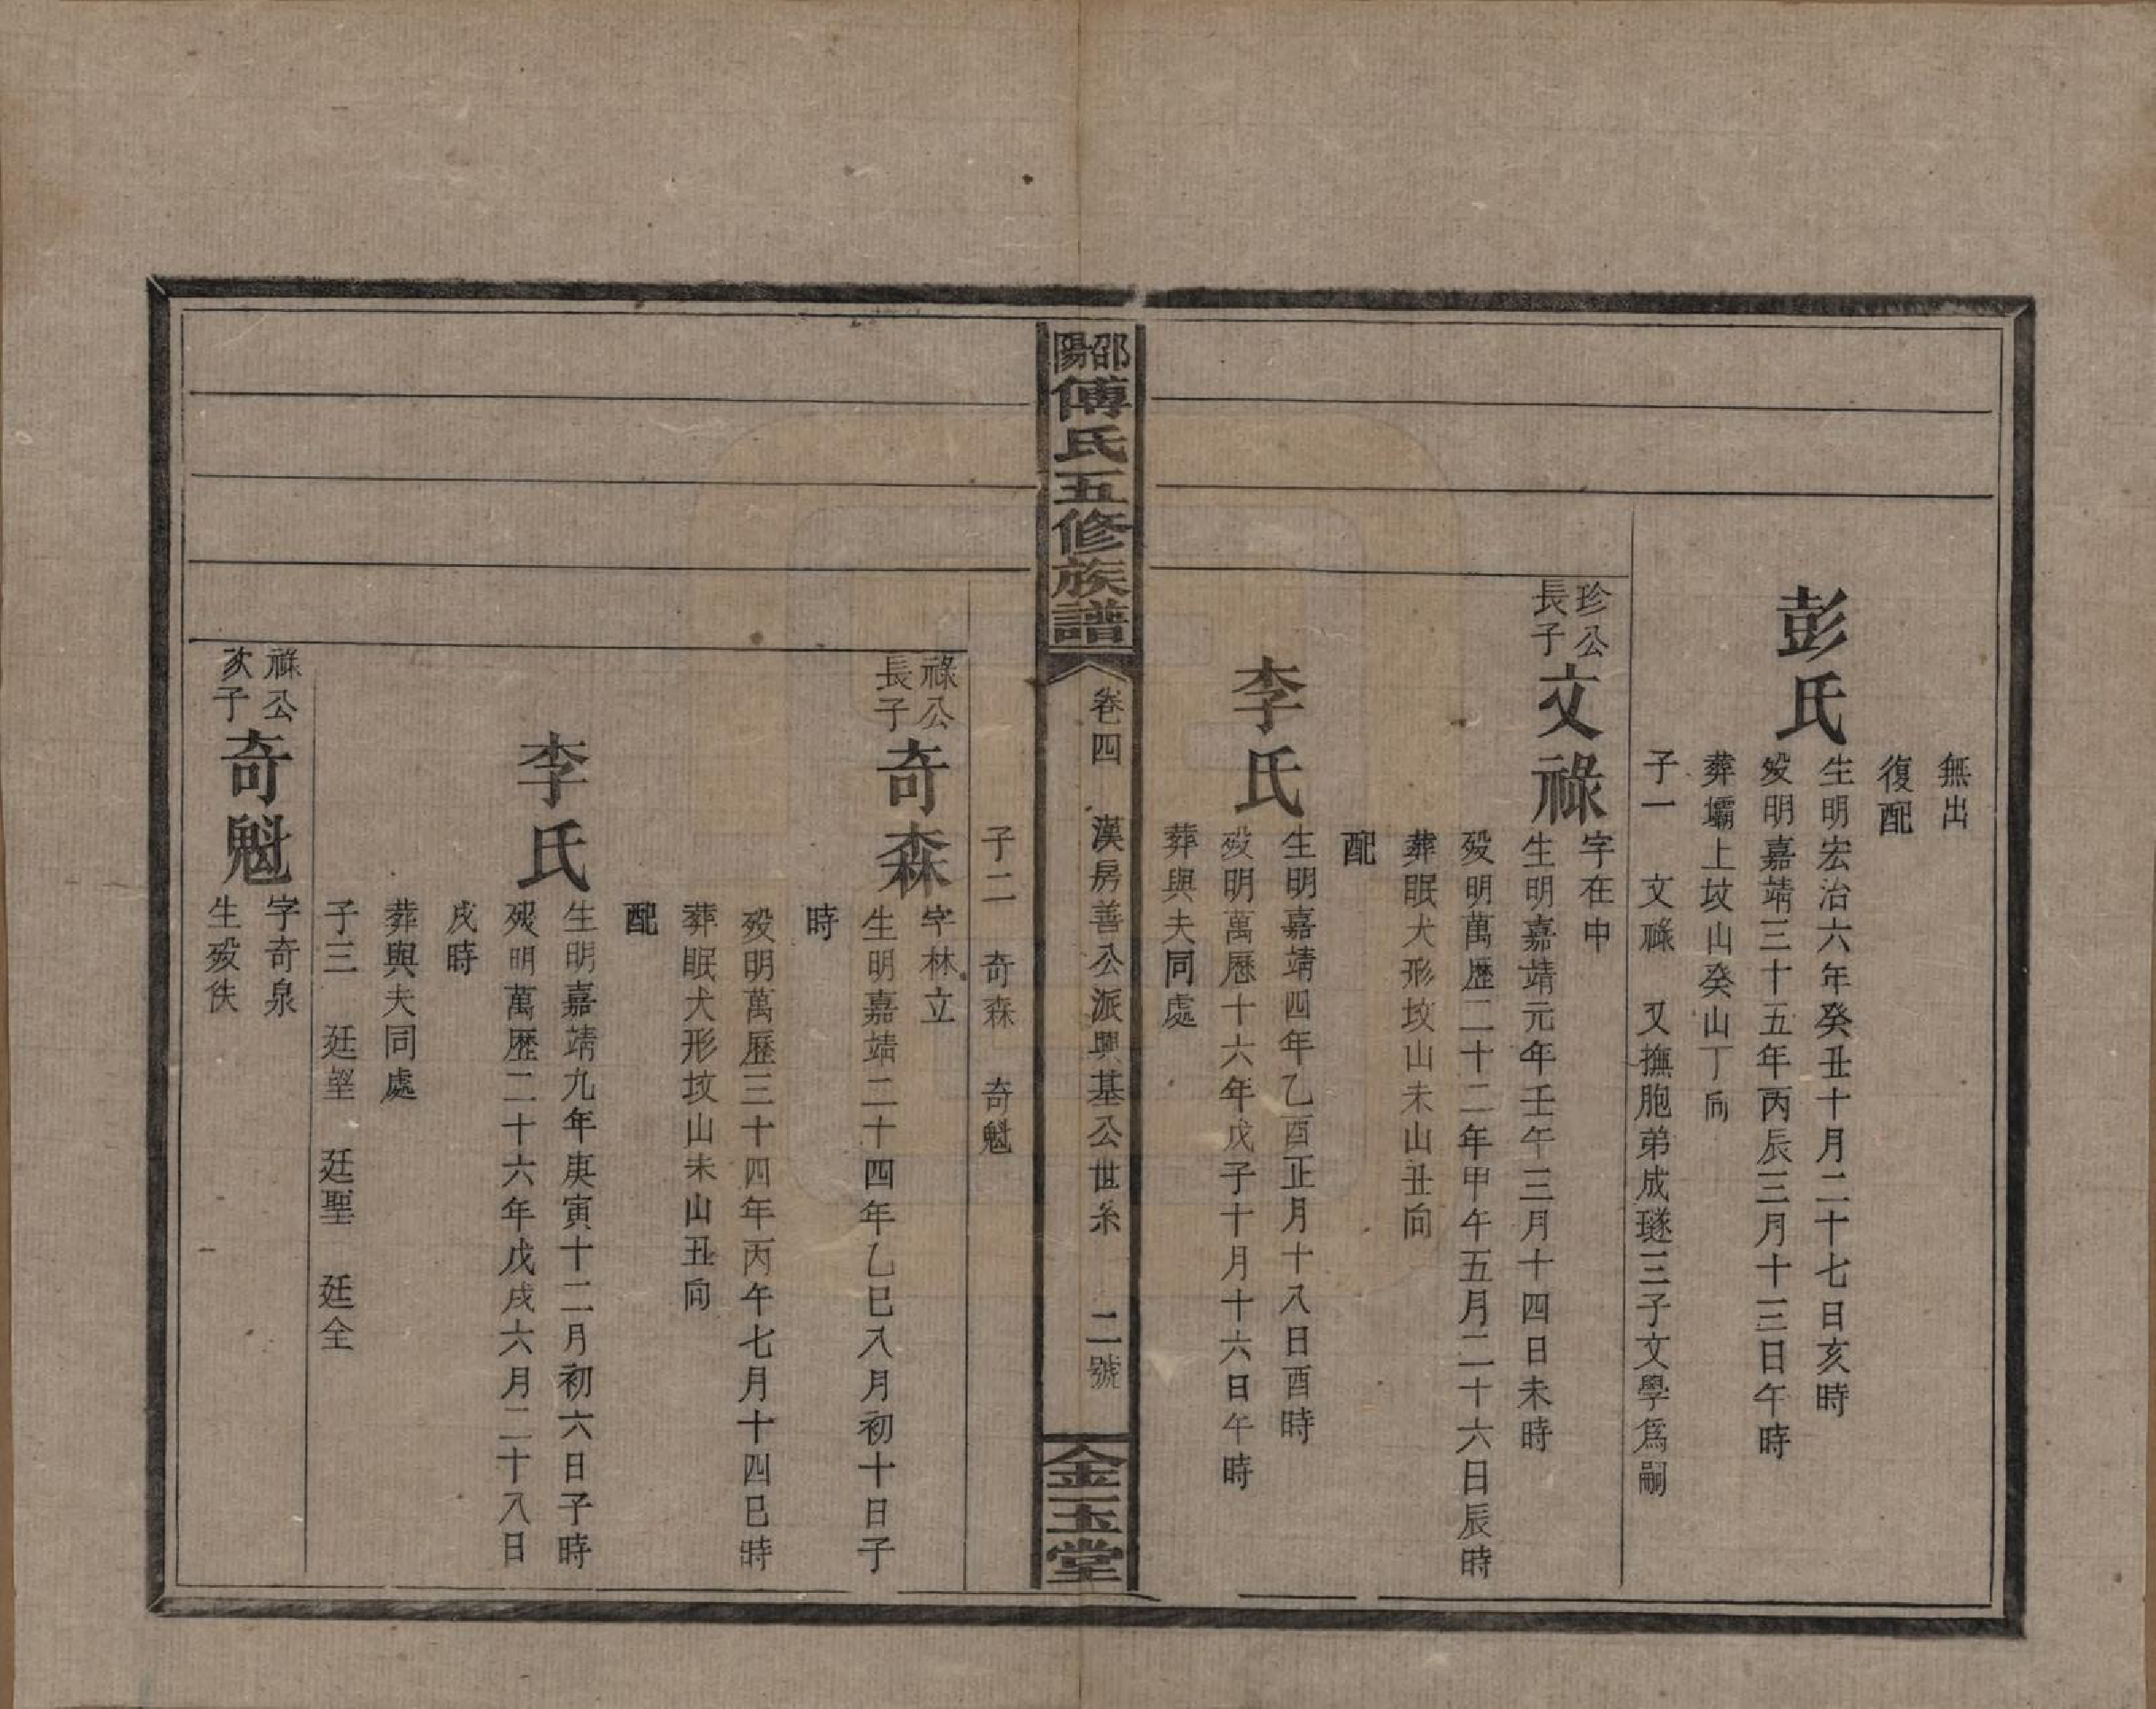 無出
復配
彭氏
生明宏治六年癸丑十月二十七日亥時
歿明嘉靖三十五年丙辰三月十三日午時
葬壩上坟山癸山丁向
子一 文祿 又撫胞弟成璲三子文學爲嗣
珍公
長子
文祿
字在中
生明嘉靖元年壬午三月十四日未時
歿明萬歷二十二年甲午五月二十六日辰時
葬眠犬形坟山未山丑向
配
李氏
生明嘉靖四年乙酉正月十八日酉時
歿明萬歷十六年戊子十月十六日午時
葬與夫同處
邵陽
傅氏五修族譜
卷四 漢房善公派興基公世系 二號
金玉堂
子二 奇森 奇魁
祿公
長子
奇森
字林立
生明嘉靖二十四年乙巳八月初十日子
時
歿明萬歷三十四年丙午七月十四巳時
葬眠犬形坟山未山丑向
配
李氏
生明嘉靖九年庚寅十二月初六日子時
歿明萬歷二十六年戊戌六月二十八日
戌時
葬與夫同處
子三 廷望 廷聖 廷全
祿公
次子
奇魁
字奇泉
生歿佚